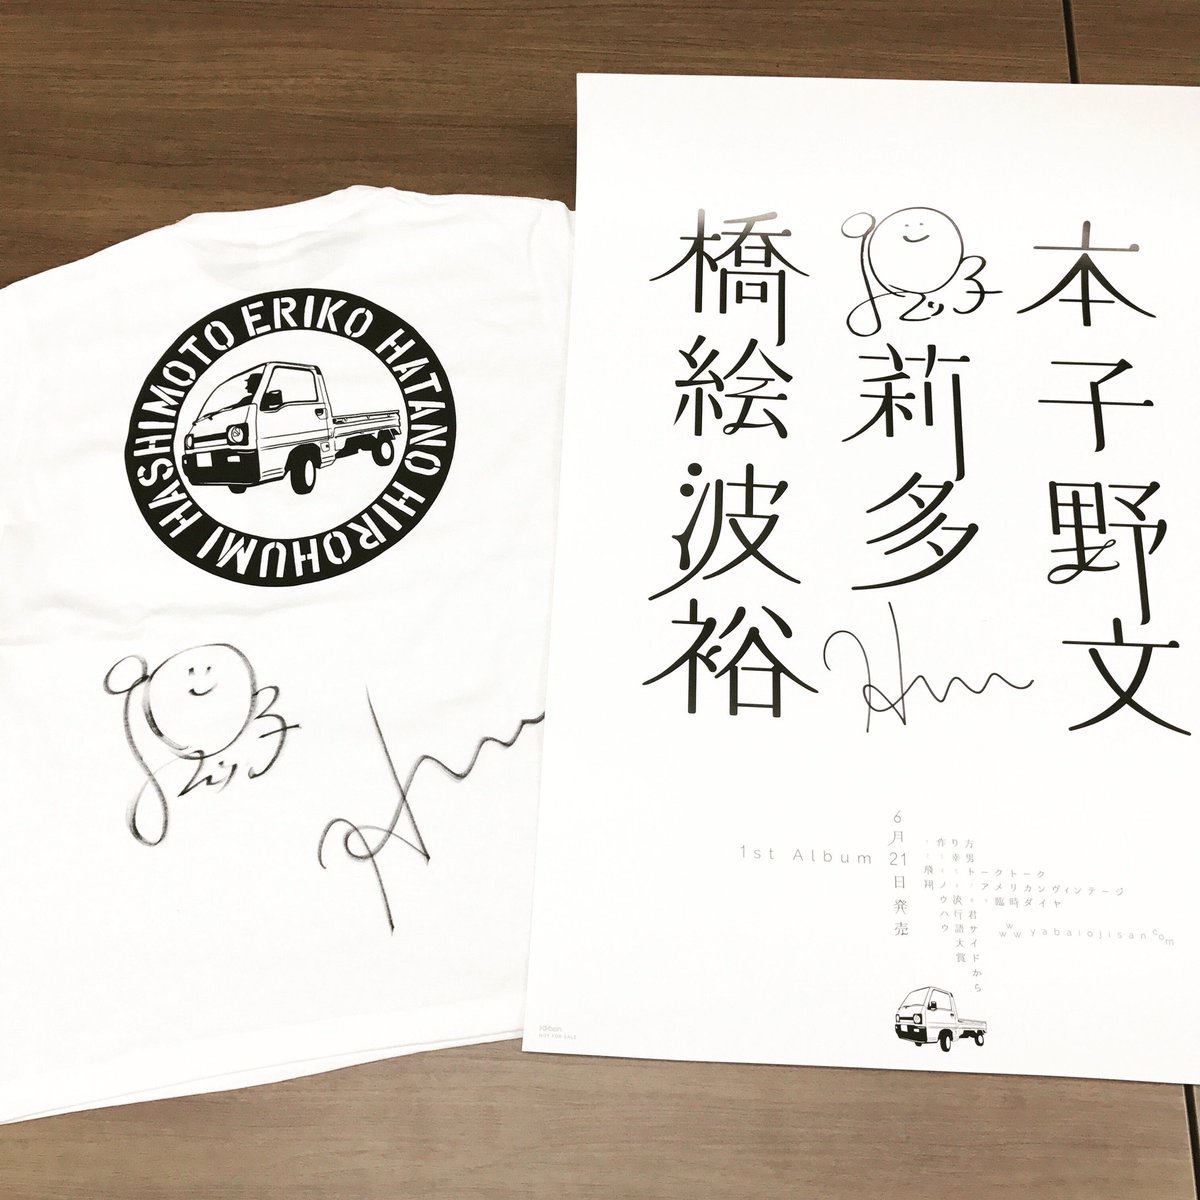 HASHIMOTO ERIKO HATANO HIROHUMI
えり子
橋 本
えり子
絵莉子
波多野
裕 文
1st Album
6月21日発売
作り方
幸男
トークトーク
アメリカンヴィンテージ
臨時ダイヤ
飛翔
ノウハウ
流行語大賞
君サイドから
www yabaiojisan com
NOT FOR SALE